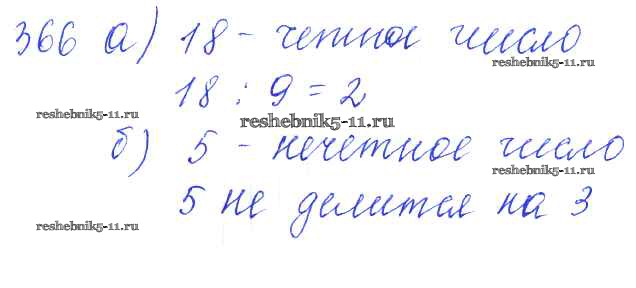 366 а) 18 - четное число
reshebnik5-11.ru
18 : 9 = 2
reshebnik5-11.ru
reshebnik5-11.ru
б) 5 - нечетное число
reshebnik5-11.ru
5 не делится на 3
reshebnik5-11.ru